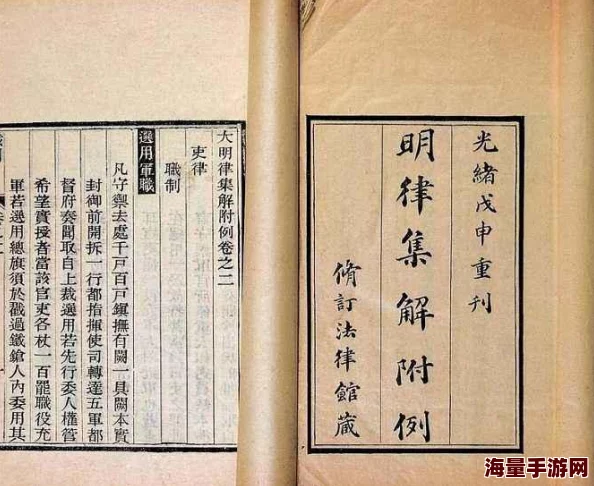 光緒戊申重刊
明律集解附例
脩訂法律館藏
大明律集解附例卷之二
吏律
職制
選用軍職
凡守禦去處千戶百戶鎮撫有闕一具闕本實
封御前開拆一行都指揮使司轉達五軍都
督府奏聞取自上裁選用若先行委人權管
希望實授者當該官吏各杖一百罷職役充
軍若選用總旗須於戳過鐵鎗人內委用其
海量手游网